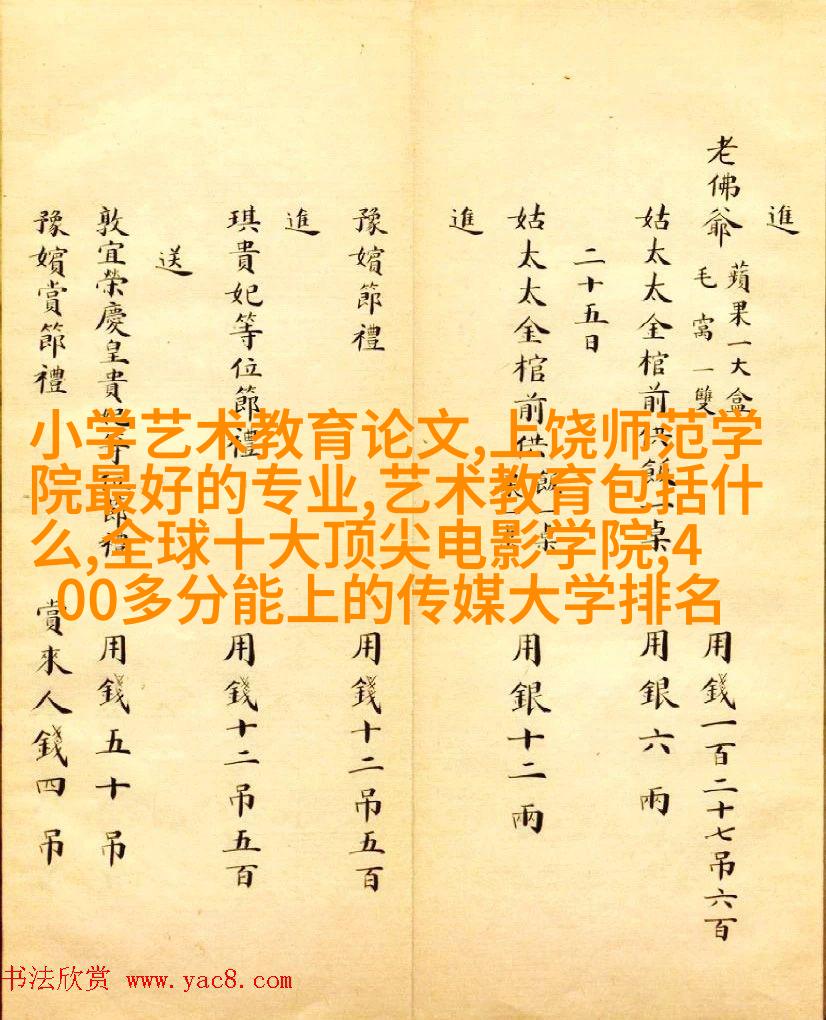 進
老佛爺 蘋果一大盒 毛窩一雙 用錢一百二十七吊六百
姑太太金棺前供飯一桌 用銀六兩
二十五日
姑太太金棺前供飯一桌 用銀十二兩
進
豫嬪節禮 用錢十二吊五百
進
琪貴妃等位節禮 用錢十二吊五百
送
敦宜榮慶皇貴妃等位節禮 用錢五十吊
豫嬪賞節禮 賞來人錢四吊
小学艺术教育论文,上饶师范学
院最好的专业,艺术教育包括什
么,全球十大顶尖电影学院,4
00多分能上的传媒大学排名
书法欣赏 www.yac8.com